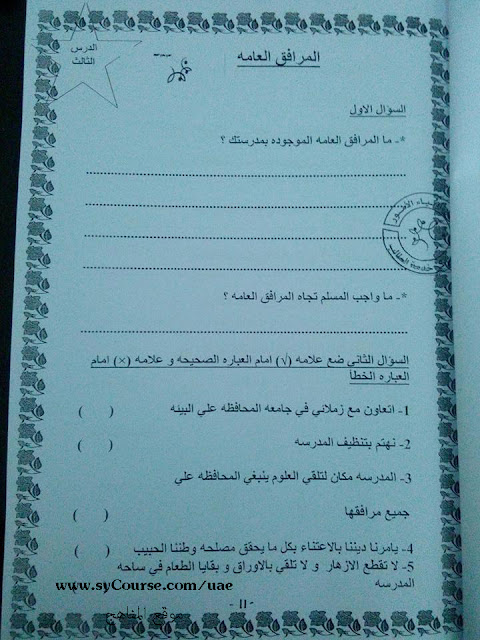 الدرس
الثالث
المرافق العامه
السؤال الاول
*- ما المرافق العامه الموجوده بمدرستك ؟
*- ما واجب المسلم تجاه المرافق العامه ؟
السؤال الثاني ضع علامه (√) امام العباره الصحيحه و علامه (×) امام
العباره الخطأ
1- اتعاون مع زملائي في جامعه المحافظه علي البيئه ( )
2- نهتم بتنظيف المدرسه ( )
3- المدرسه مكان لتلقي العلوم ينبغي المحافظه علي
جميع مرافقها ( )
4- يامرنا ديننا بالاعتناء بكل ما يحقق مصلحه وطننا الحبيب ( )
5- لا تقطع الازهار و لا تلقي بالاوراق و بقايا الطعام في ساحه
المدرسه
www.syCourse.com/uae
- 11 -
موقع المناهج